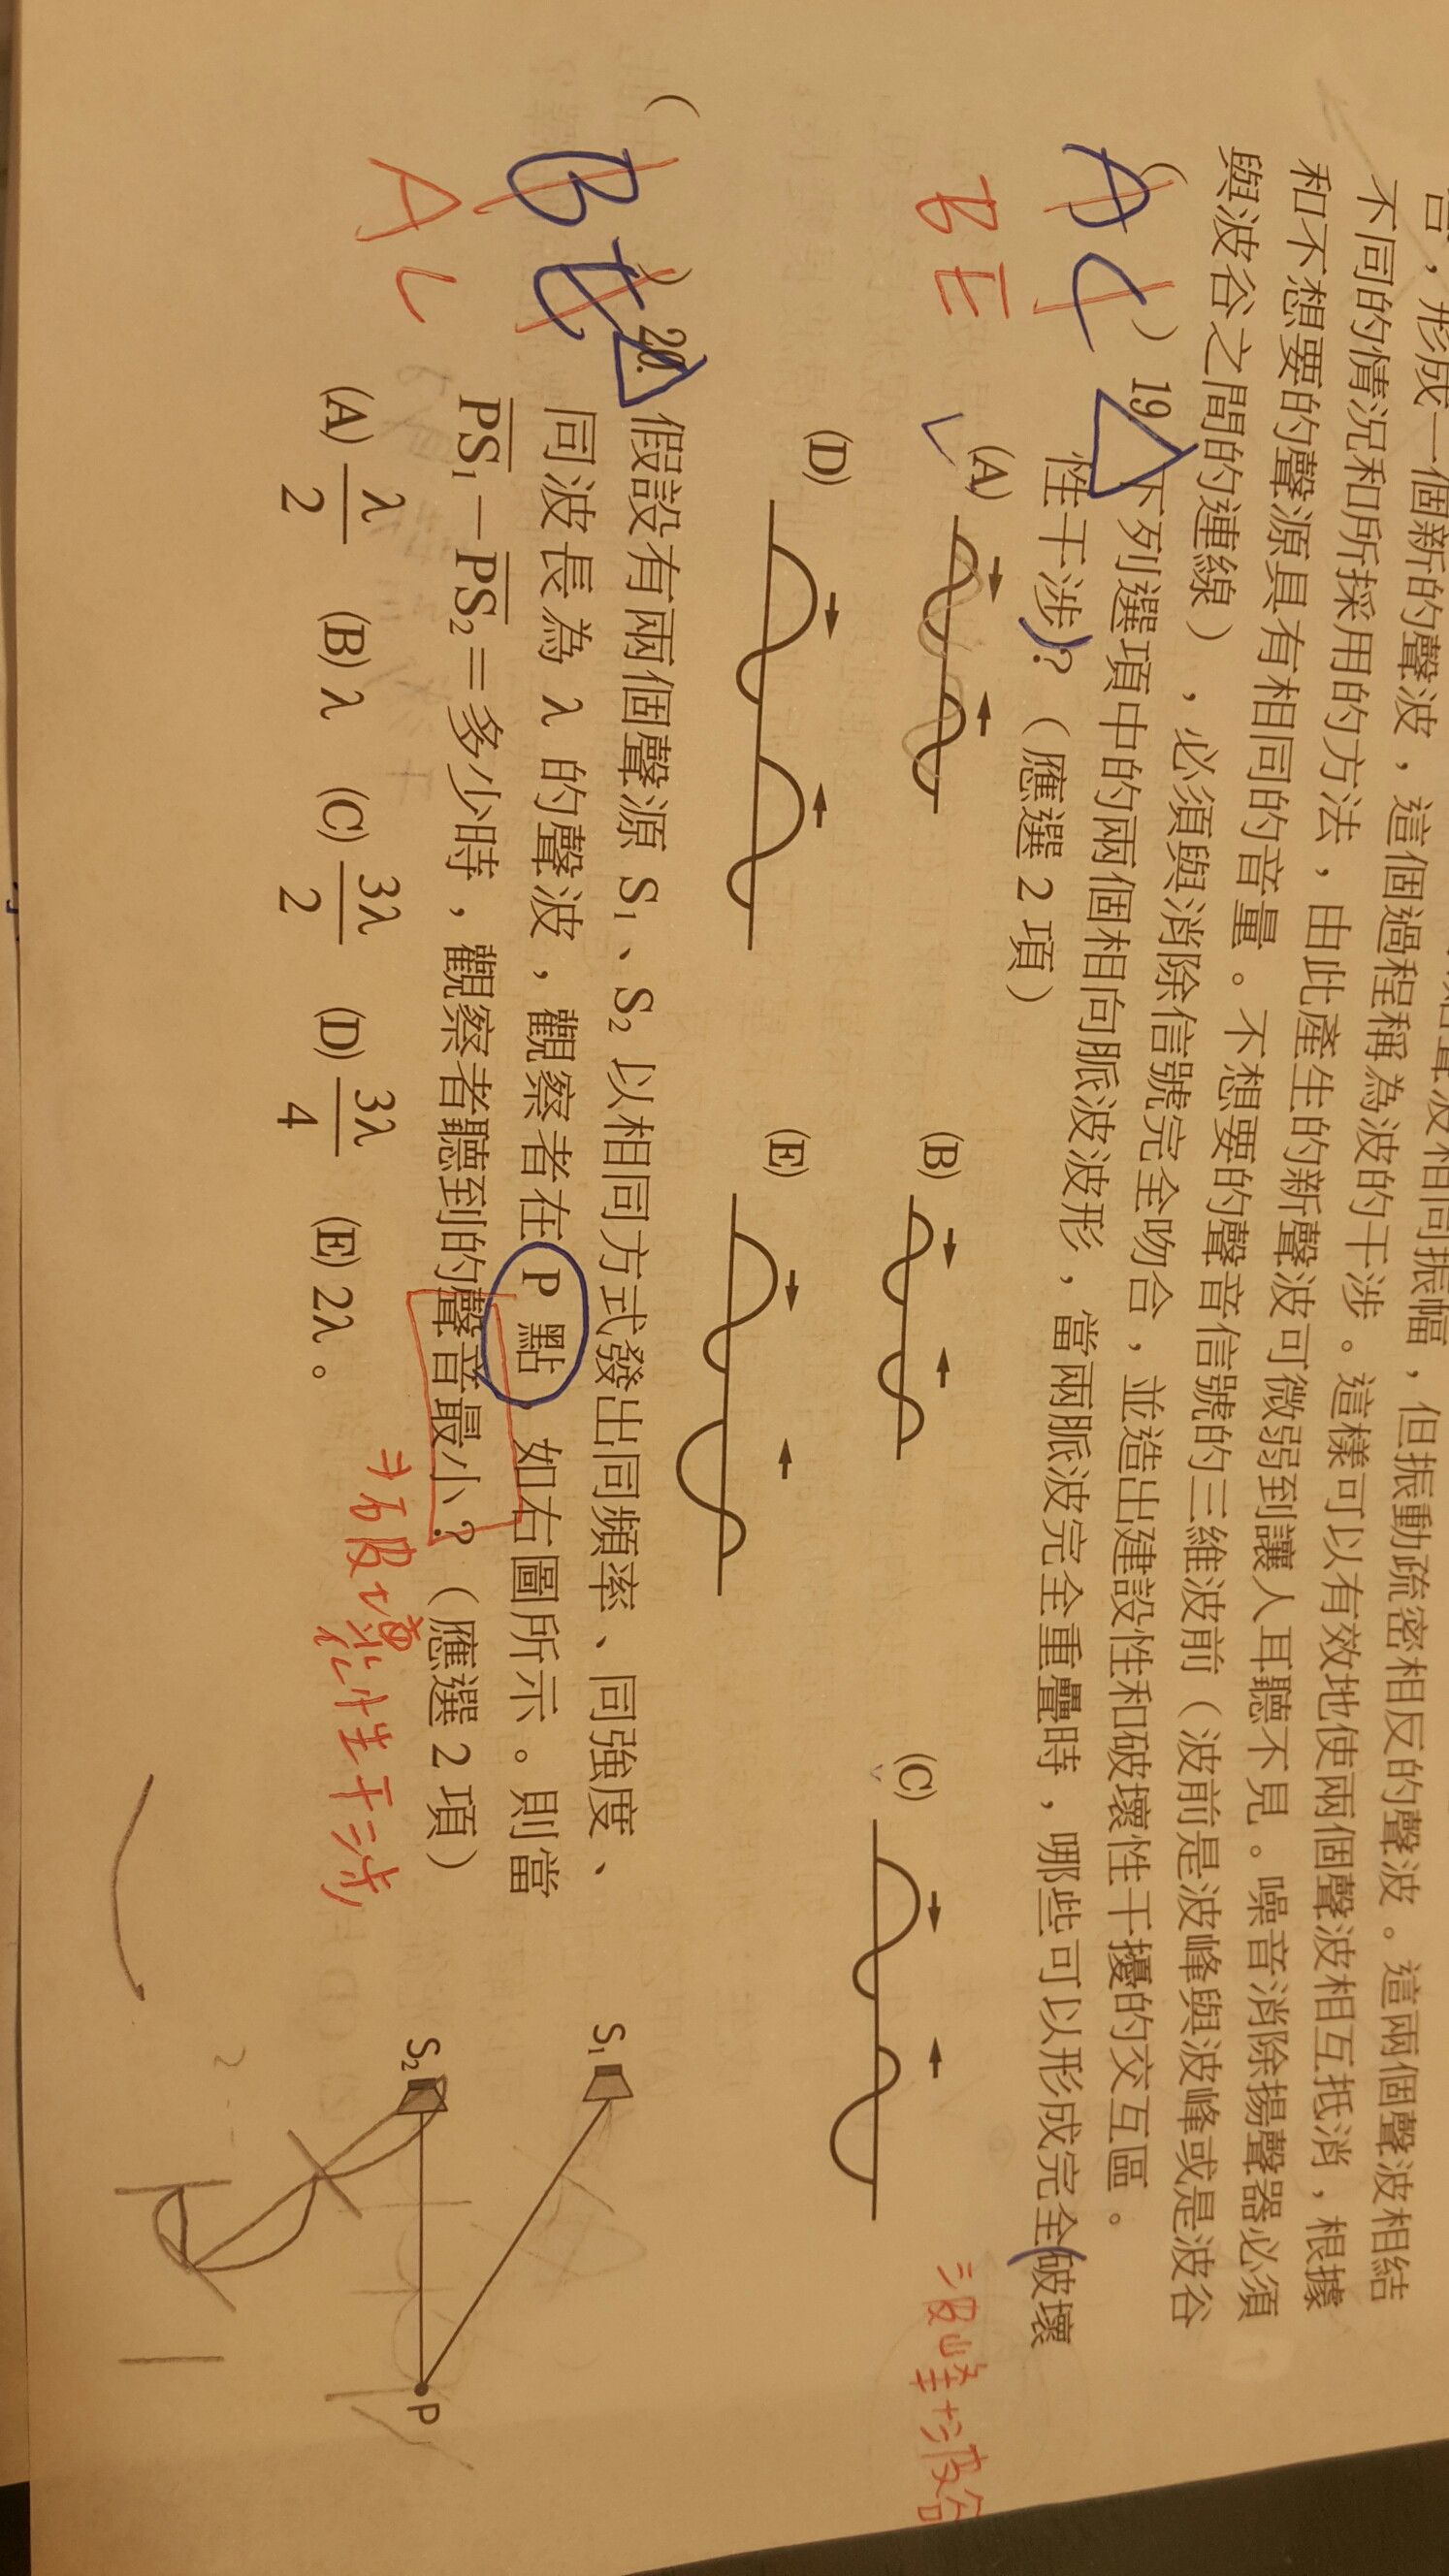 音，形成一個新的聲波，這個過程稱為波的干涉。這樣可以有效地使兩個聲波相互抵消，根據
不同的情況和所採用的方法，由此產生的新聲波可微弱到讓人耳聽不見。噪音消除揚聲器必須
和不想要的聲源具有相同的音量。不想要的聲音信號的三維波前（波前是波峰與波峰或是波谷
與波谷之間的連線），必須與消除信號完全吻合，並造出建設性和破壞性干擾的交互區。
AC
BE
（ ）19. 下列選項中的兩個相向脈波波形，當兩脈波完全重疊時，哪些可以形成完全破壞
性干涉？（應選 2 項）
(A) (B) (C)
(D) (E)
BE
AC
（ ）20. 假設有兩個聲源 S₁、S₂ 以相同方式發出同頻率、同強度、
同波長為 λ 的聲波，觀察者在 P 點，如右圖所示。則當
PS₁－PS₂＝多少時，觀察者聽到的聲音最小？（應選 2 項）
(A) λ/2 (B) λ (C) 3λ/2 (D) 3λ/4 (E) 2λ。
S₁
S₂
P